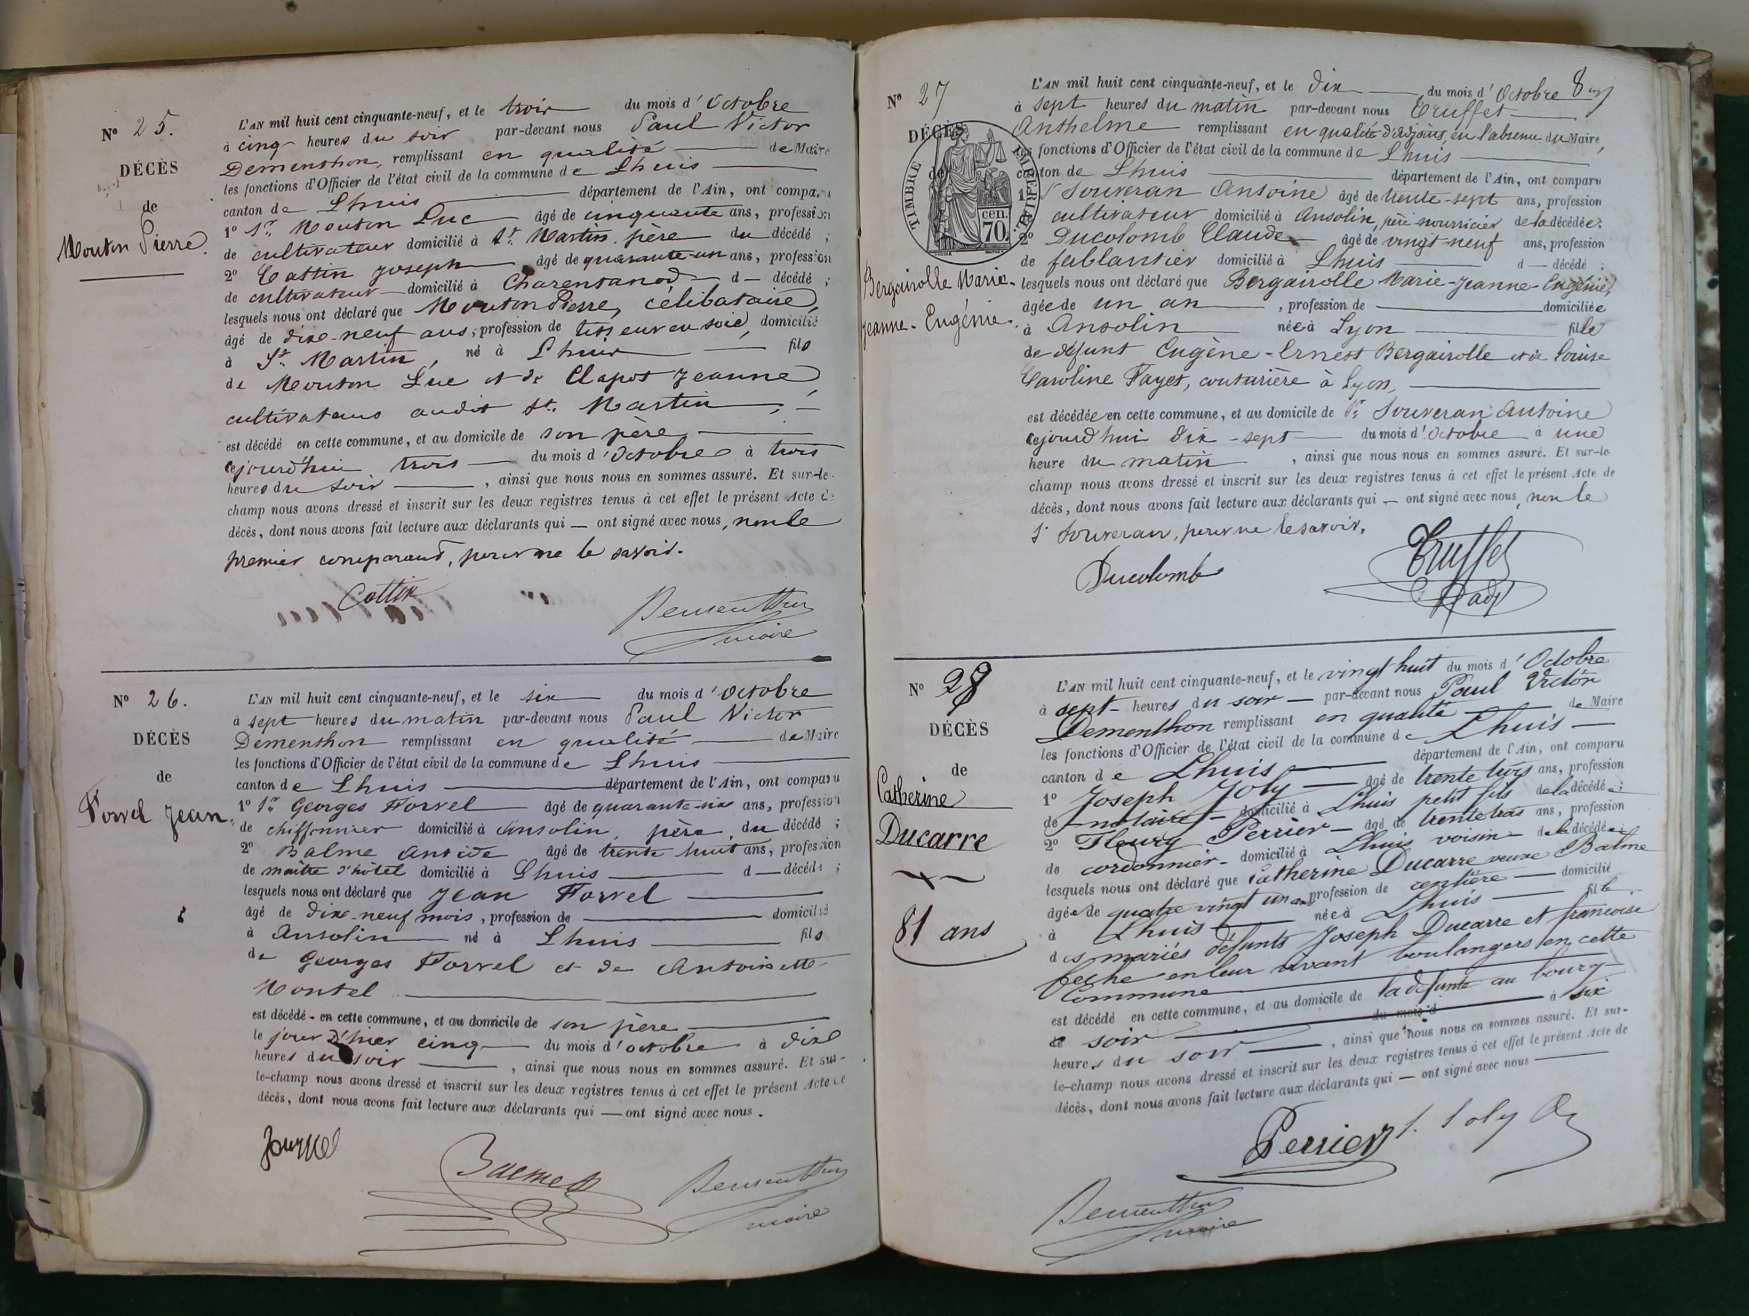 N° 25.
DÉCÈS
de
Mouton Pierre.
L'AN mil huit cent cinquante-neuf, et le trois du mois d'Octobre
à cinq heures du soir par-devant nous Paul Victor
Dementhon, remplissant en qualité de Maire
les fonctions d'Officier de l'état civil de la commune de Lhuis
canton de Lhuis département de l'Ain, ont comparu
1° Sr. Mouton Luc âgé de cinquante ans, profession
de cultivateur domicilié à St. Martin, père du décédé ;
2° Cottin Joseph âgé de quarante-un ans, profession
de cultivateur domicilié à Charensanod d — décédé ;
lesquels nous ont déclaré que Mouton Pierre, célibataire,
âgé de dix-neuf ans, profession de tisseur en soie, domicilié
à St. Martin, né à Lhuis fils
de Mouton Luc et de Clapot Jeanne
cultivateurs audit St. Martin ;
est décédé en cette commune, et au domicile de son père
cejourd'hui trois du mois d'Octobre à trois
heures du soir , ainsi que nous nous en sommes assuré. Et sur-le-
champ nous avons dressé et inscrit sur les deux registres tenus à cet effet le présent Acte de
décès, dont nous avons fait lecture aux déclarants qui — ont signé avec nous, non le
premier comparant, pour ne le savoir.
Cottin
Dementhon
maire
N° 26.
DÉCÈS
de
Forvel Jean.
L'AN mil huit cent cinquante-neuf, et le six du mois d'Octobre
à sept heures du matin par-devant nous Paul Victor
Dementhon remplissant en qualité de Maire
les fonctions d'Officier de l'état civil de la commune de Lhuis
canton de Lhuis département de l'Ain, ont comparu
1° Sr Georges Forvel âgé de quarante-six ans, profession
de chiffonnier domicilié à Ansolin, père, du décédé ;
2° Balme Antide âgé de trente huit ans, profession
de maître d'hôtel domicilié à Lhuis d — décédé ;
lesquels nous ont déclaré que Jean Forvel
âgé de dix-neuf mois, profession de domicilié
à Ansolin né à Lhuis fils
de Georges Forvel et de Antoinette
Montel
est décédé en cette commune, et au domicile de son père
le jour d'hier cinq du mois d'octobre à dix
heures du soir , ainsi que nous nous en sommes assuré. Et sur-
le-champ nous avons dressé et inscrit sur les deux registres tenus à cet effet le présent Acte de
décès, dont nous avons fait lecture aux déclarants qui — ont signé avec nous.
Balme
Dementhon
maire
N° 27
DÉCÈS
de
TIMBRE IMPÉRIAL
70 cen.
Bergairolle Marie-
Jeanne-Eugénie.
L'AN mil huit cent cinquante-neuf, et le dix du mois d'Octobre
à sept heures du matin par-devant nous Truffet
Anthelme remplissant en qualité d'adjoint, en l'absence du Maire,
les fonctions d'Officier de l'état civil de la commune de Lhuis
canton de Lhuis département de l'Ain, ont comparu
1° Sr Souveran Antoine âgé de trente-sept ans, profession
cultivateur domicilié à Ansolin, père nourricier de la décédée ;
2° Ducolomb Claude âgé de vingt-neuf ans, profession
de ferblantier domicilié à Lhuis d — décédé ;
lesquels nous ont déclaré que Bergairolle Marie-Jeanne-Eugénie,
âgée de un an , profession de domiciliée
à Ansolin née à Lyon fille
de défunt Eugène-Ernest Bergairolle et de Louise
Caroline Fayet, couturière à Lyon,
est décédée en cette commune, et au domicile de Sr Souveran Antoine
cejourd'hui dix-sept du mois d'Octobre à une
heure du matin , ainsi que nous nous en sommes assuré. Et sur-le-
champ nous avons dressé et inscrit sur les deux registres tenus à cet effet le présent Acte de
décès, dont nous avons fait lecture aux déclarants qui — ont signé avec nous, non le
Sr Souveran, pour ne le savoir,
Ducolomb
Truffet
N° 28
DÉCÈS
de
Catherine
Ducarre
81 ans
L'AN mil huit cent cinquante-neuf, et le vingt huit du mois d'Octobre
à sept heures du soir — par-devant nous Paul Victor
Dementhon remplissant en qualité de Maire
les fonctions d'Officier de l'état civil de la commune de Lhuis
canton de Lhuis département de l'Ain, ont comparu
1° Joseph Joly âgé de trente trois ans, profession
de notaire domicilié à Lhuis petit fils de la décédée ;
2° Fleury Perrier âgé de trente trois ans, profession
de cordonnier domicilié à Lhuis voisin de la décédée
lesquels nous ont déclaré que Catherine Ducarre veuve Balme
âgée de quatre vingt un ans profession de rentière domicilié
à Lhuis née à Lhuis fille
des mariés défunts Joseph Ducarre et françoise
Peche en leur vivant boulangers en cette
Commune
est décédé en cette commune, et au domicile de la défunte au bourg
ce soir du mois d à six
heures du soir , ainsi que nous nous en sommes assuré. Et sur-
le-champ nous avons dressé et inscrit sur les deux registres tenus à cet effet le présent Acte de
décès, dont nous avons fait lecture aux déclarants qui — ont signé avec nous
Perrier J. Joly
Dementhon
maire